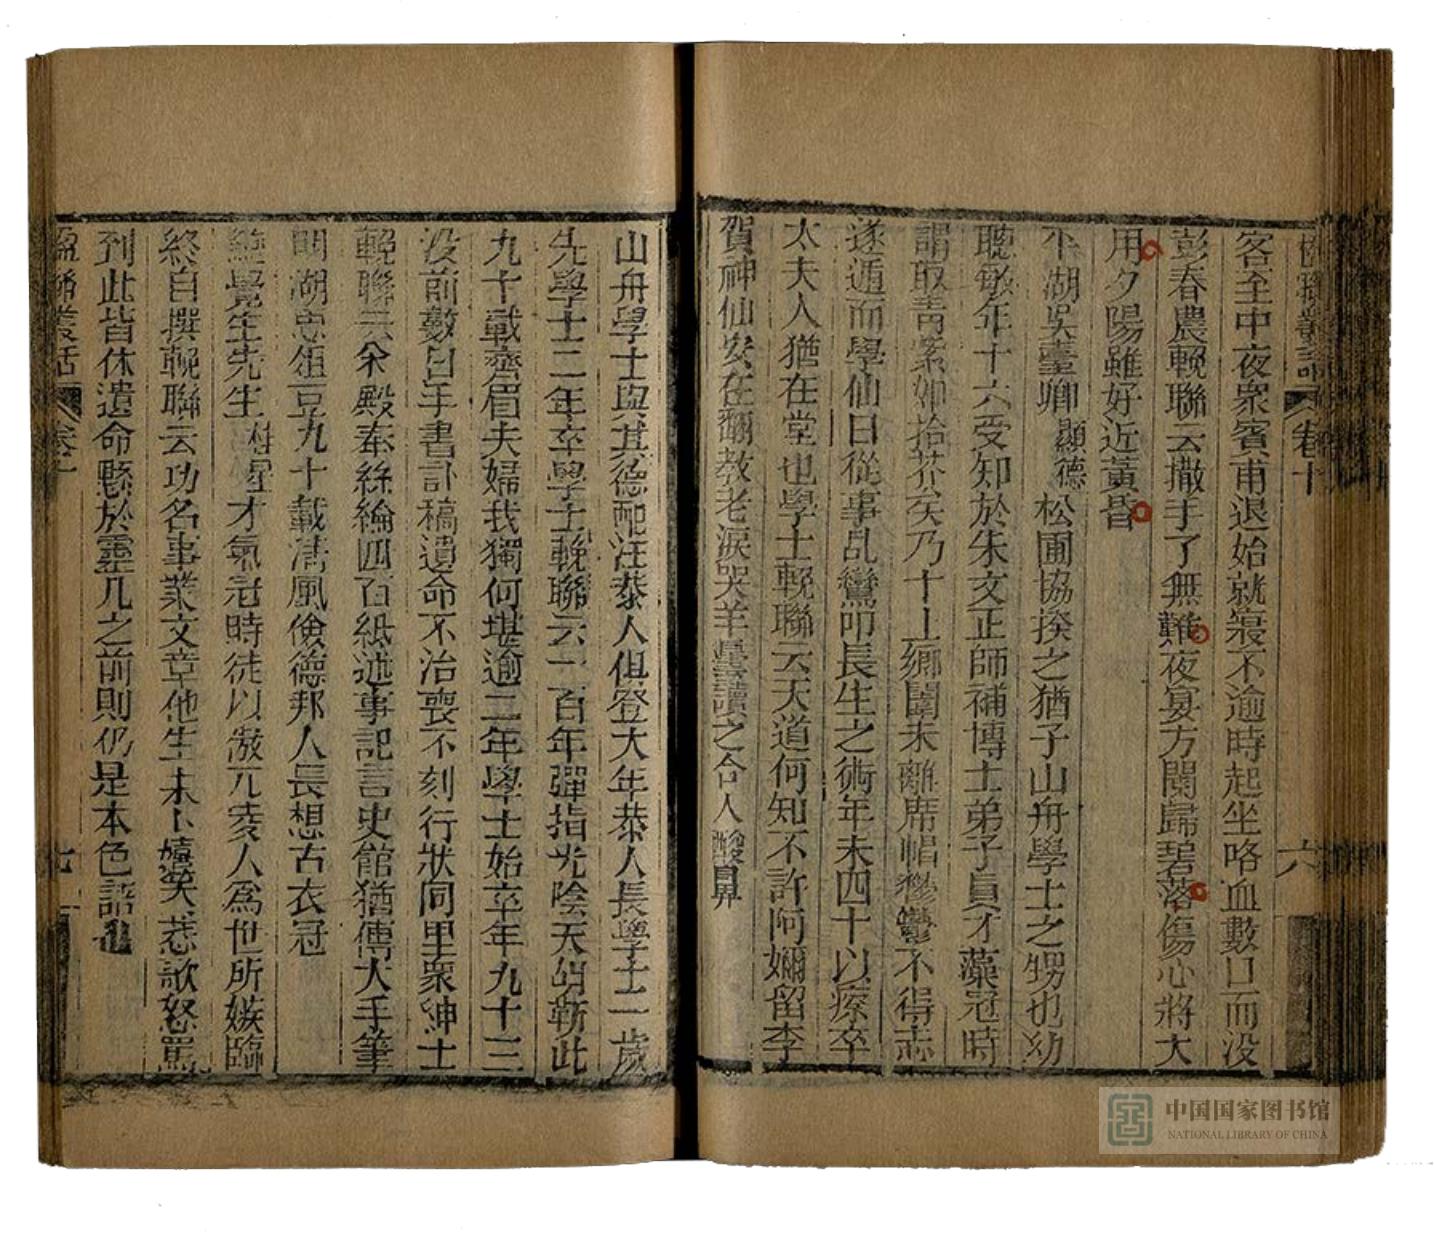 楹聯叢話 卷十 六
客至中夜衆賓甫退始就寢不逾時起坐咯血數口而没
彭春農輓聯云撒手了無難夜宴方闌歸碧落傷心將大
用夕陽雖好近黃昏
平湖吳臺卿顯德松圃協揆之猶子山舟學士之甥也幼
聰敏年十六受知於朱文正師補博士弟子員才藻冠時
謂取青紫如拾芥矣乃十上鄉闈未離席帽鬱鬱不得志
遂遁而學仙日從事乩鸞叩長生之術年未四十以瘵卒
太夫人猶在堂也學士輓聯云天道何知不許阿㜷留李
賀神仙安在翻教老淚哭羊曇讀之令人酸鼻
山舟學士與其德配汪恭人俱登大年恭人長學士二歲
先學士二年卒學士輓聯云一百年彈指光陰天胡靳此
九十載齊眉夫婦我獨何堪逾二年學士始卒年九十三
没前數日手書訃稿遺命不治喪不刻行狀同里衆紳士
輓聯云余殿奉絲綸四百紙述事記言史館猶傳大手筆
明湖忠俎豆九十載清風儉德邦人長想古衣冠
鮑覺生先生桂星才氣冠時徒以傲兀凌人爲世所嫉臨
終自撰輓聯云功名事業文章他生未卜嬉笑惹歌怒罵
到此皆休遺命懸於靈几之前則仍是本色語也
楹聯叢話 卷十 七
中国国家图书馆
NATIONAL LIBRARY OF CHINA